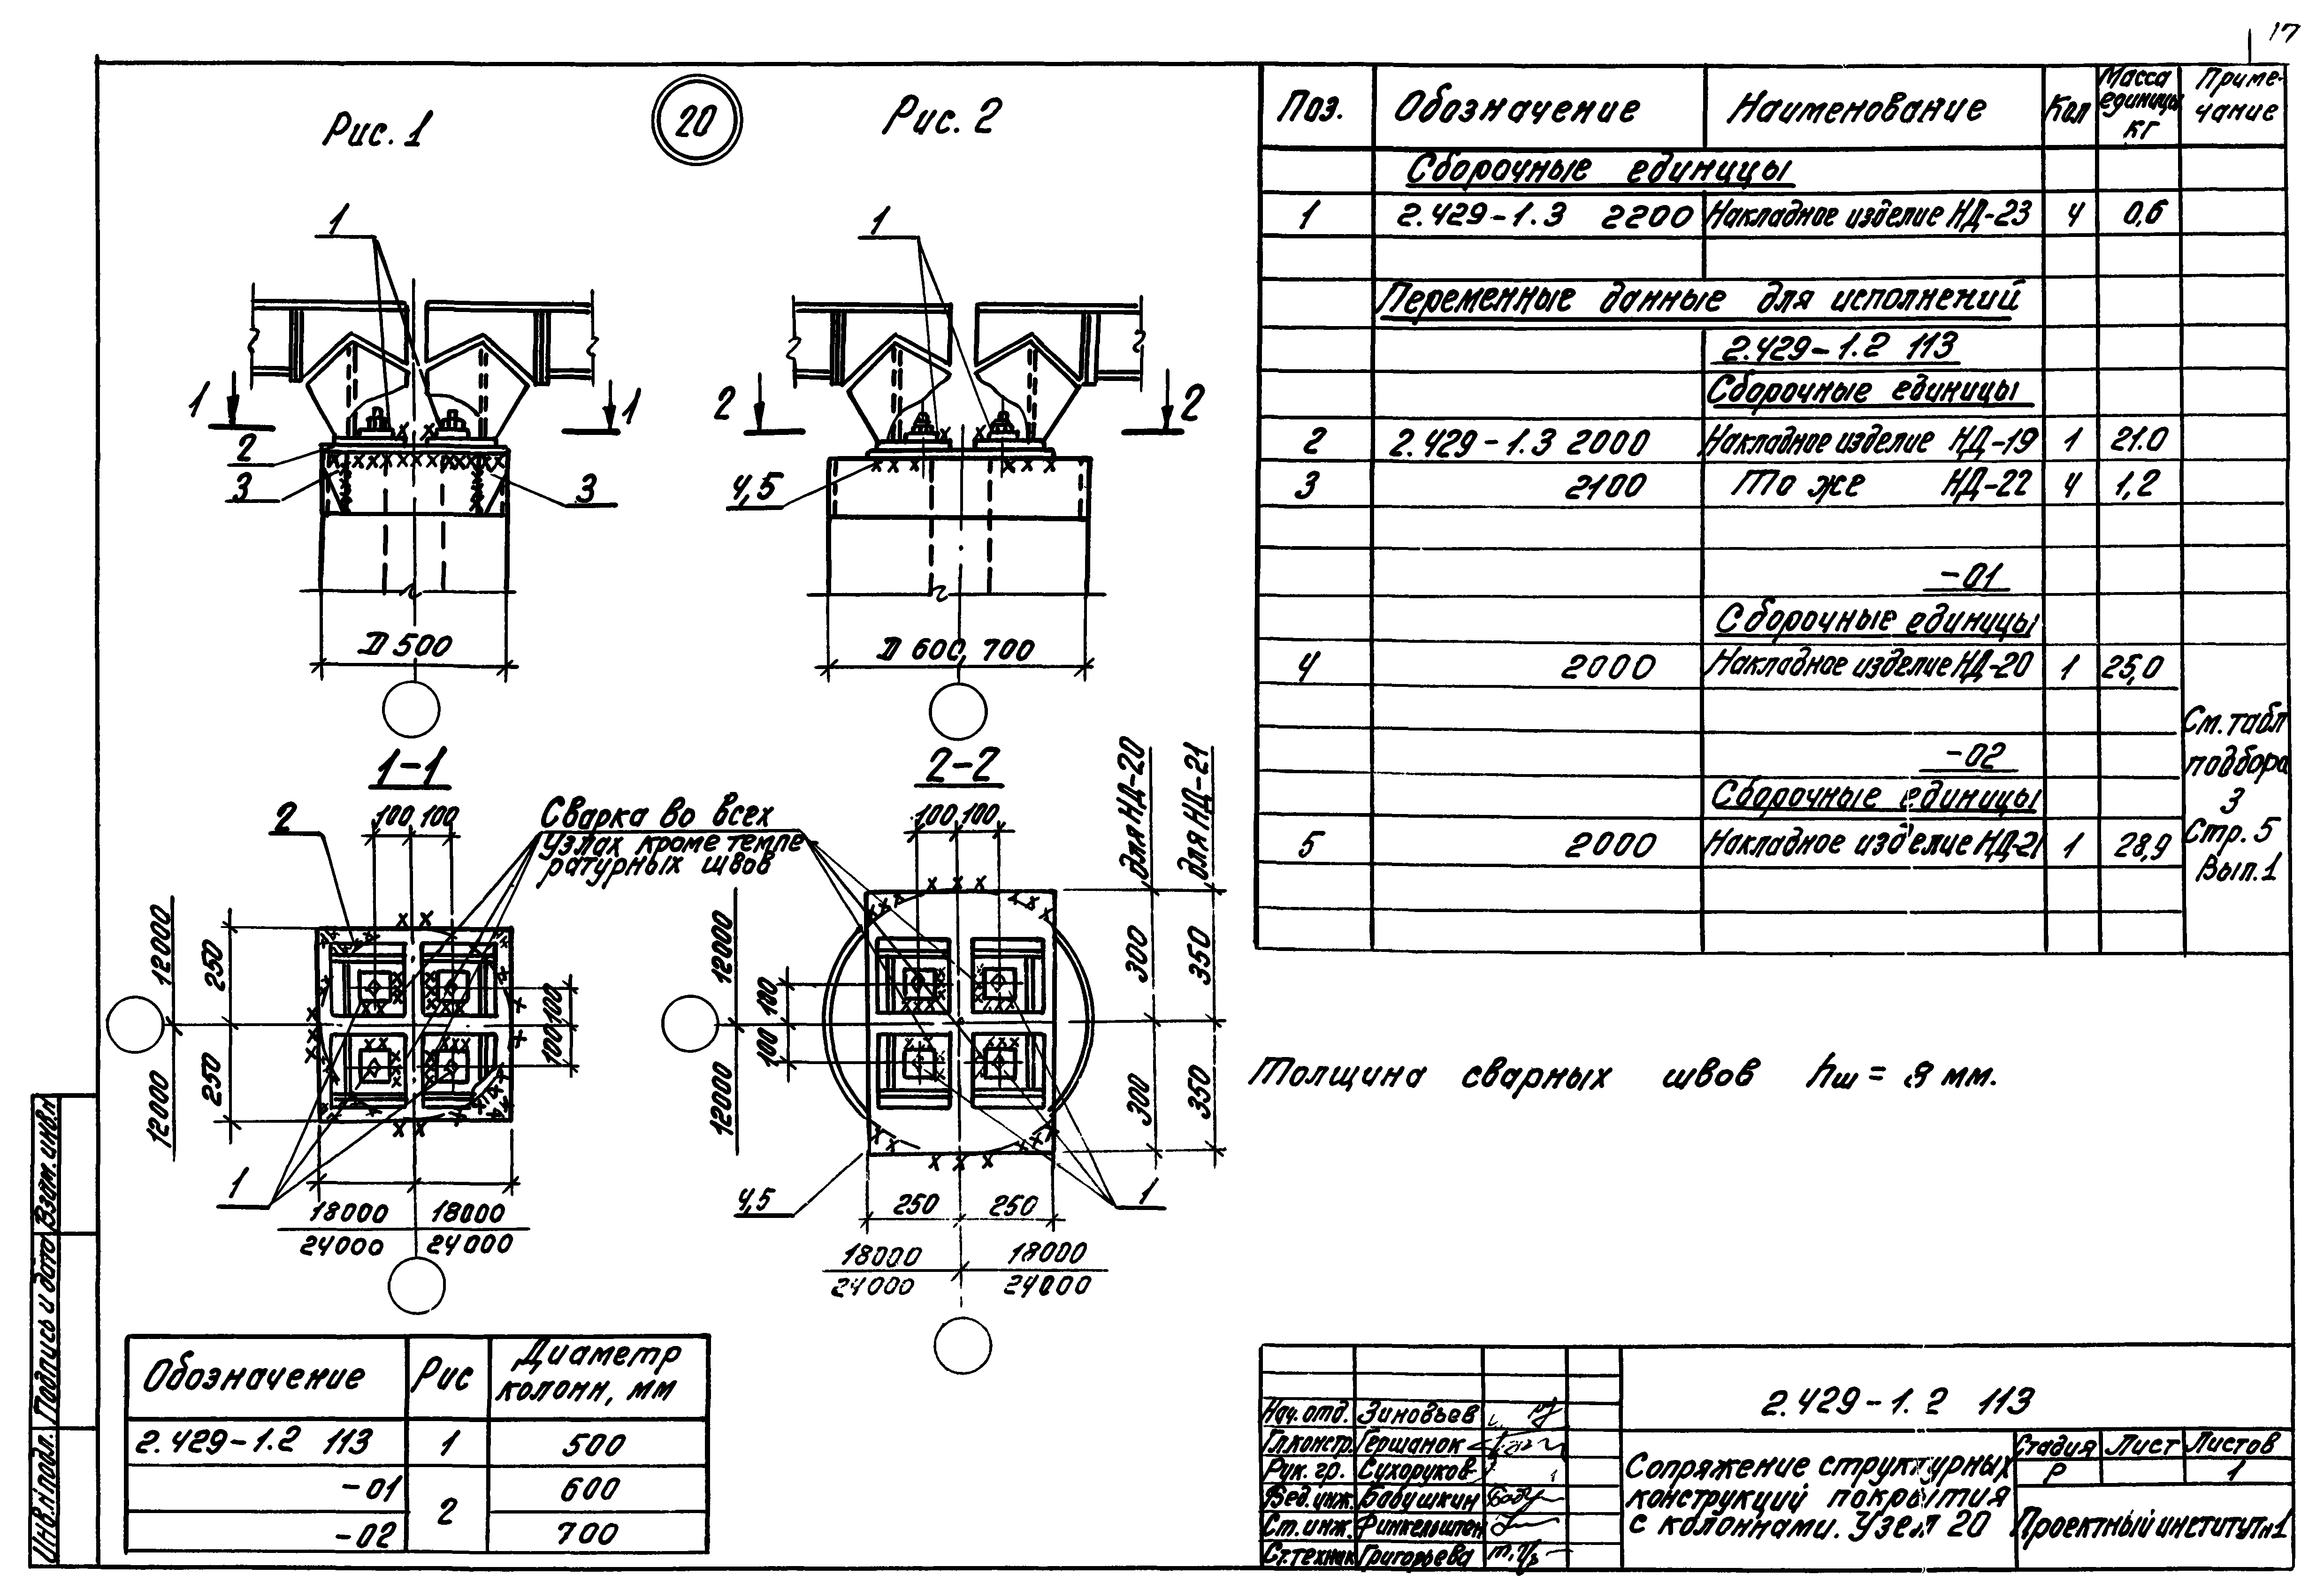 17
Рис. 1
20
Рис. 2
1
1
1
1
2
2
2
3
3
4,5
D 500
D 600, 700
1-1
2-2
Сварка во всех
узлах кроме темпе
ратурных швов
2
100 100
100 100
для НД-20
для НД-21
12000
250
12000
250
100
100
12000
12000
100
100
300
350
300
350
1
4,5
1
250 250
18000 18000
24000 24000
18000 18000
24000 24000
Обозначение Рис Диаметр колонн, мм
2.429-1.2 113 1 500
-01 2 600
-02 700
Поз. Обозначение Наименование Кол Масса единицы кг Приме-чание
Сборочные единицы
1 2.429-1.3 2200 Накладное изделие НД-23 4 0,6
Переменные данные для исполнений
2.429-1.2 113
Сборочные единицы
2 2.429-1.3 2000 Накладное изделие НД-19 1 21.0
3 2100 То же НД-22 4 1,2
-01
Сборочные единицы
4 2000 Накладное изделие НД-20 1 25,0
-02
Сборочные единицы
5 2000 Накладное изделие НД-21 1 28,9
См. табл
подбора
3
Стр. 5
Вып. 1
Толщина сварных швов hш = мм.
Инв.N подл. Подпись и дата Взам.инв.N
Нач.отд. Зиновьев
Гл.констр. Гершанок
Рук. гр. Сухоруков
Вед.инж. Бабушкин
Ст.инж. Финкельштен
Ст.технак Григорьева
2.429-1.2 113
Сопряжение структурных
конструкций покрытия
с колоннами. Узел 20
Стадия Лист Листов
Р 1
Проектный институт N1